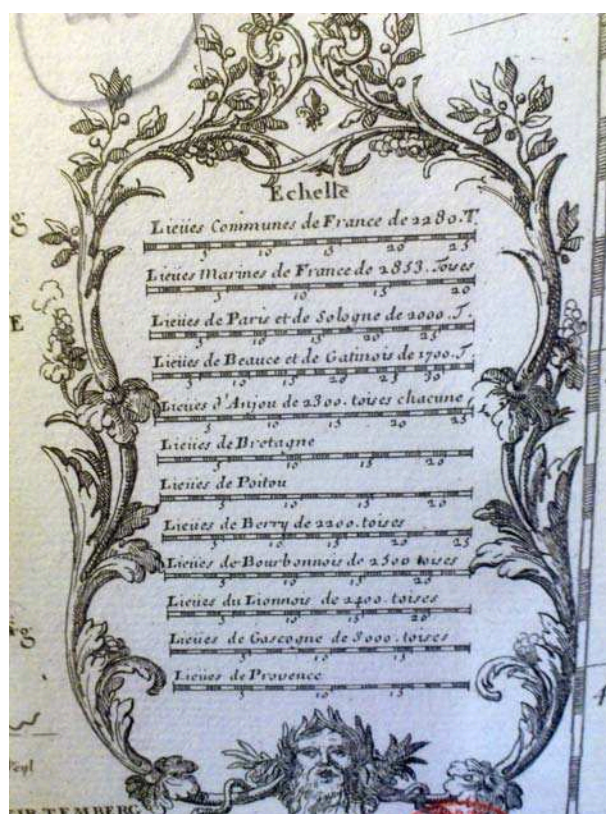 Echelle
Lieües Communes de France de 2280. T.
5 10 15 20 25
Lieües Marines de France de 2853. Toises
5 10 15 20
Lieües de Paris et de Sologne de 2000. T.
5 10 15 20 25
Lieües de Beauce et de Gatinois de 1700. T.
5 10 15 20 25 30
Lieües d'Anjou de 2300. toises chacune
5 10 15 20 25
Lieües de Bretagne
5 10 15 20
Lieües de Poitou
5 10 15 20
Lieües de Berry de 2200. toises
5 10 15 20 25
Lieües de Bourbonnois de 2500 toises
5 10 15 20
Lieües du Lionnois de 2400. toises
5 10 15 20
Lieües de Gascogne de 3000. toises
5 10 15
Lieües de Provence
5 10 15
TEMBERG